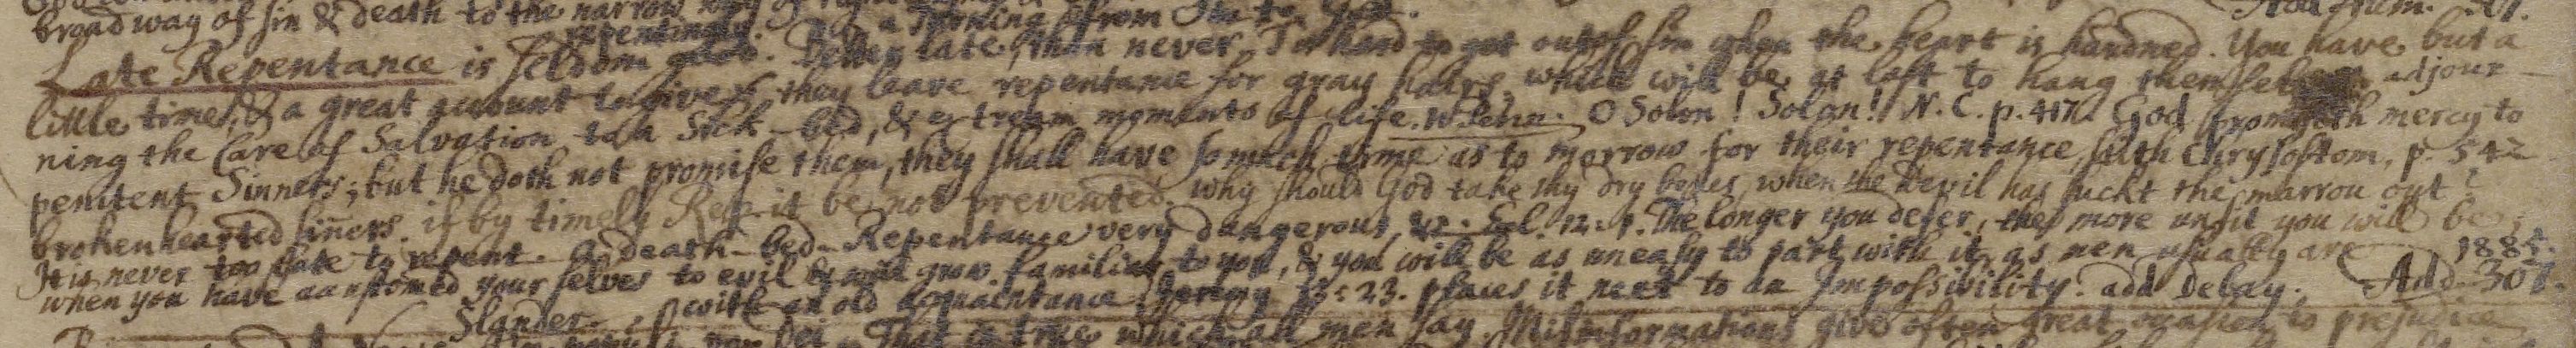 broad way of sin & death to the narrow way of
repenting. a Turning from Sin to God. Add Num.
Late Repentance is seldom good. Better late, than never. Tis hard to get out of sin when the heart is hardned. You have but a
little time, & a great account to give they leave repentance for gray hairs, which will be at last to hang themselves adjour-
ning the Care of Salvation to a Sick-bed, & extream moments of life. W Penn. O Solon! Solon! N. C. p. 417. God promiseth mercy to
penitent Sinners; but he doth not promise them, they shall have so much time as to morrow for their repentance, saith Chrysostom, p. 542
brokenhearted siners. if by timely Rep. it be not prevented. why should God take thy dry bones, when the Devil has suckt the marrou out?
It is never too late to repent. A death-bed-Repentance very dangerous, &c. Eccl. 12. 1. The longer you defer, the more unfit you will be;
when you have accustomed your selves to evil & will grow familiar to you, & you will be as uneasy to part with it, as men usually are 1884.
Slander. with an old acquaintance Jeremy 13: 23. places it next to an Impossibility. add Delay. Add 307.
That is true which all men say. Misinformations give often great occasion to prejudice